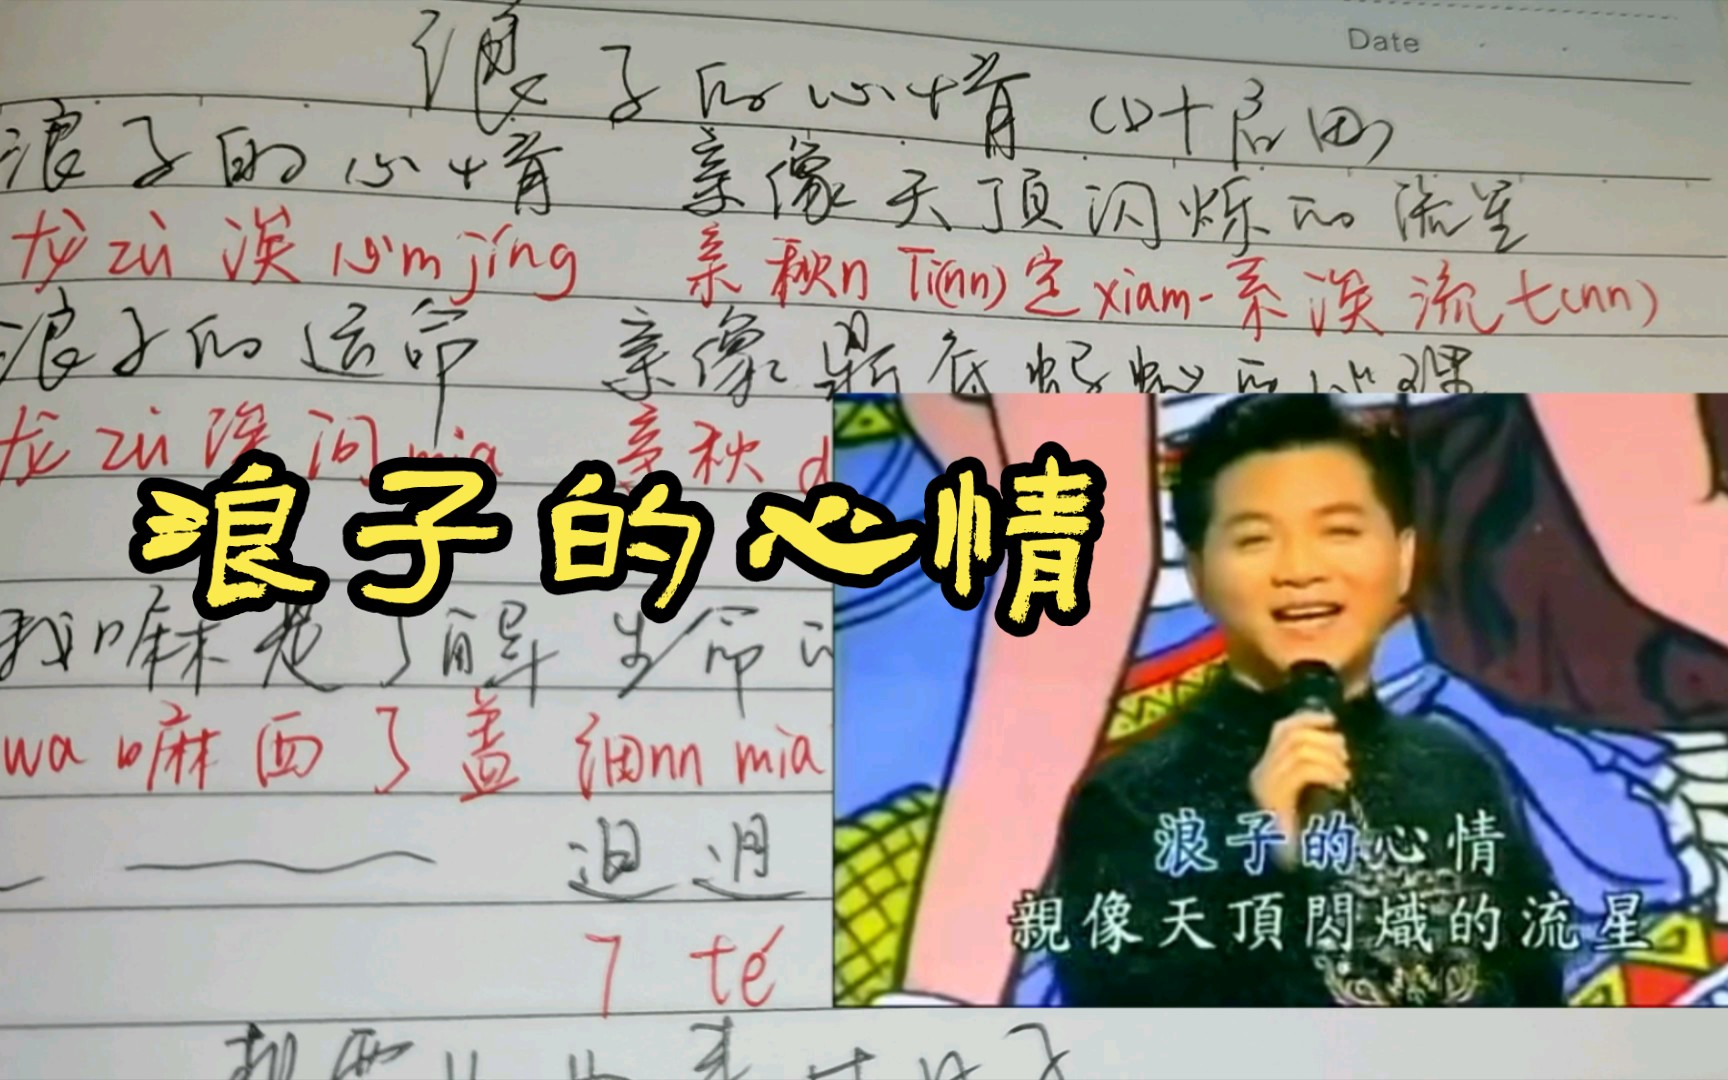 Date
浪子的心情 (叶启田)
浪子的心情 亲像天顶闪烁的流星
龙 zú 涘 心m jíng 亲秋n Ti(nn)定 xiam-系涘流七(nn)
浪子的运命 亲像鼎底蚂蚁的
龙 zú 涘问 mia 亲秋 d
浪子的心情
我嘛是了解 生命
wa 嘛西了盖 细nn mia
迌迌
7 té
浪子的心情
親像天頂閃熾的流星